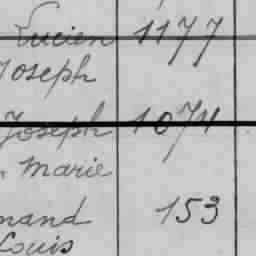 Lucien 1177
Joseph
Joseph 1074
Marie
mand 153
Louis